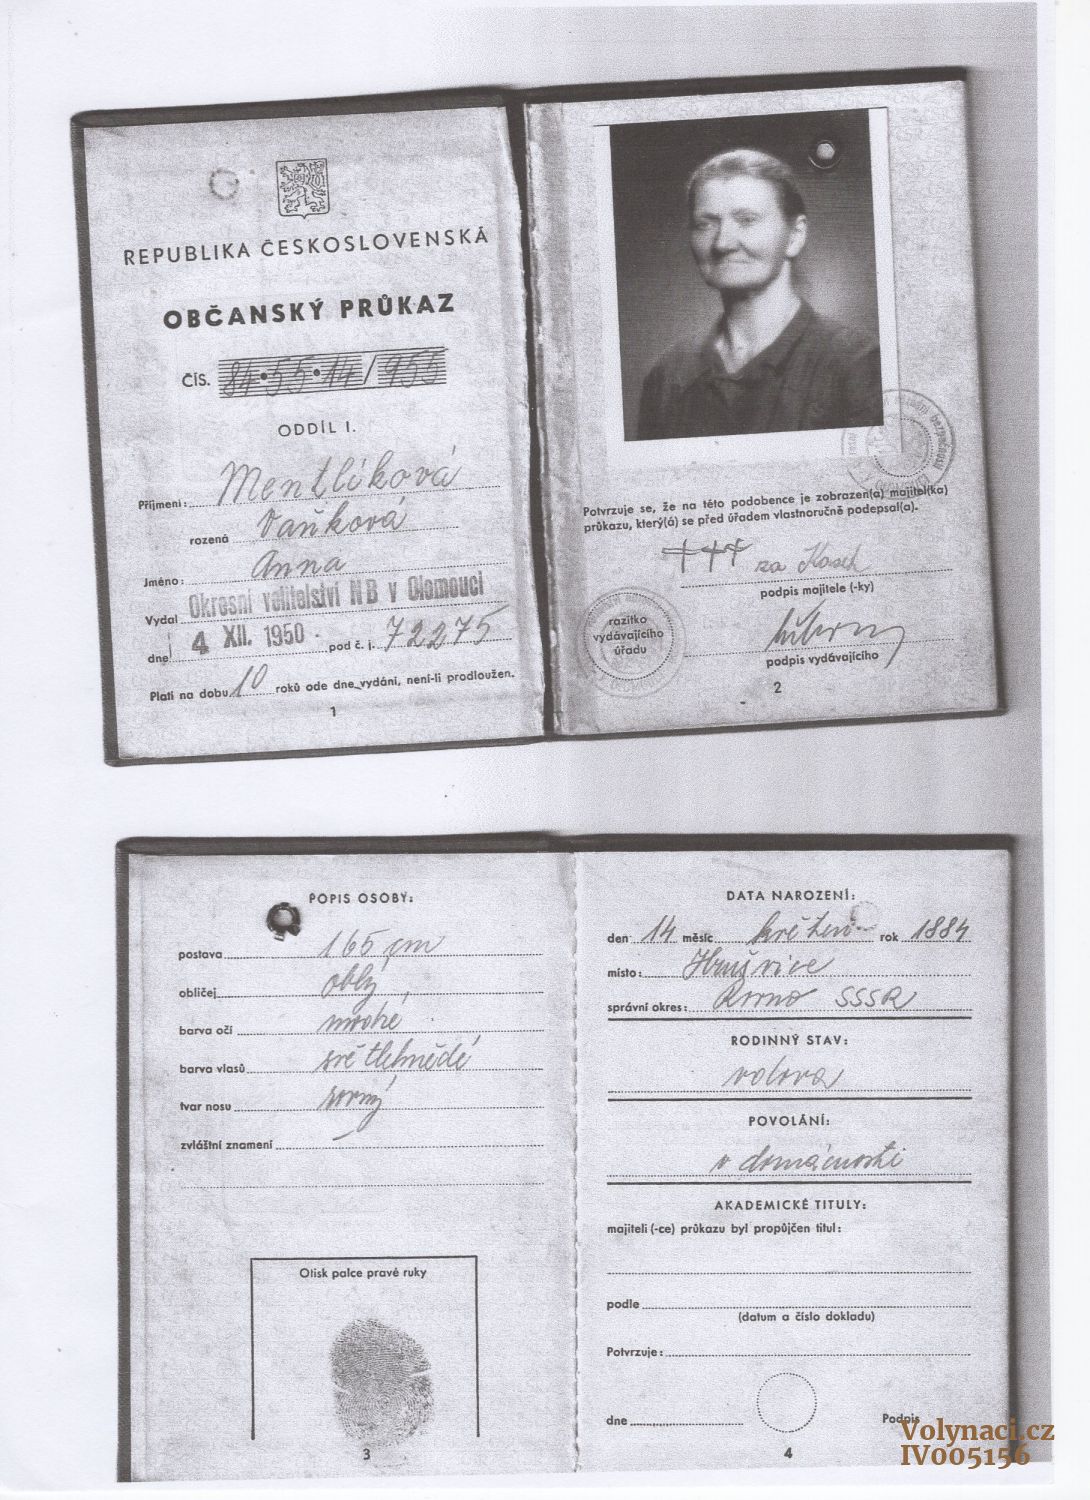 REPUBLIKA ČESKOSLOVENSKÁ
OBČANSKÝ PRŮKAZ
ČÍS. 84·55·14/955
ODDÍL I.
Příjmení: Mentlíková
rozená Vaňková
Jméno: Anna
Vydal Okresní velitelství NB v Olomouci
dne 4 XII. 1950 pod č. j. 72275
Platí na dobu 10 roků ode dne vydání, není-li prodloužen.
1
Potvrzuje se, že na této podobence je zobrazen(a) majitel(ka)
průkazu, který(á) se před úřadem vlastnoručně podepsal(a).
+++ za
podpis majitele (-ky)
razítko
vydávajícího
úřadu
podpis vydávajícího
2
POPIS OSOBY:
postava 165 cm
obličej oblý
barva očí modré
barva vlasů světlehnědé
tvar nosu rovný
zvláštní znamení —
Otisk palce pravé ruky
3
DATA NAROZENÍ:
den 14 měsíc květen rok 1884
místo: Hrušvice
správní okres: Rovno SSSR
RODINNÝ STAV:
vdova
POVOLÁNÍ:
v domácnosti
AKADEMICKÉ TITULY:
majiteli (-ce) průkazu byl propůjčen titul:
podle
(datum a číslo dokladu)
Potvrzuje:
dne
Podpis
4
Volynaci.cz
IV005156